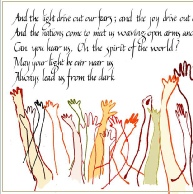 And the light drive out our fears; and the joy drive out
And the nations come to meet us waving open arms and
Can you hear us, Oh the spirit of the world?
May your light be ever near us
Always lead us from the dark